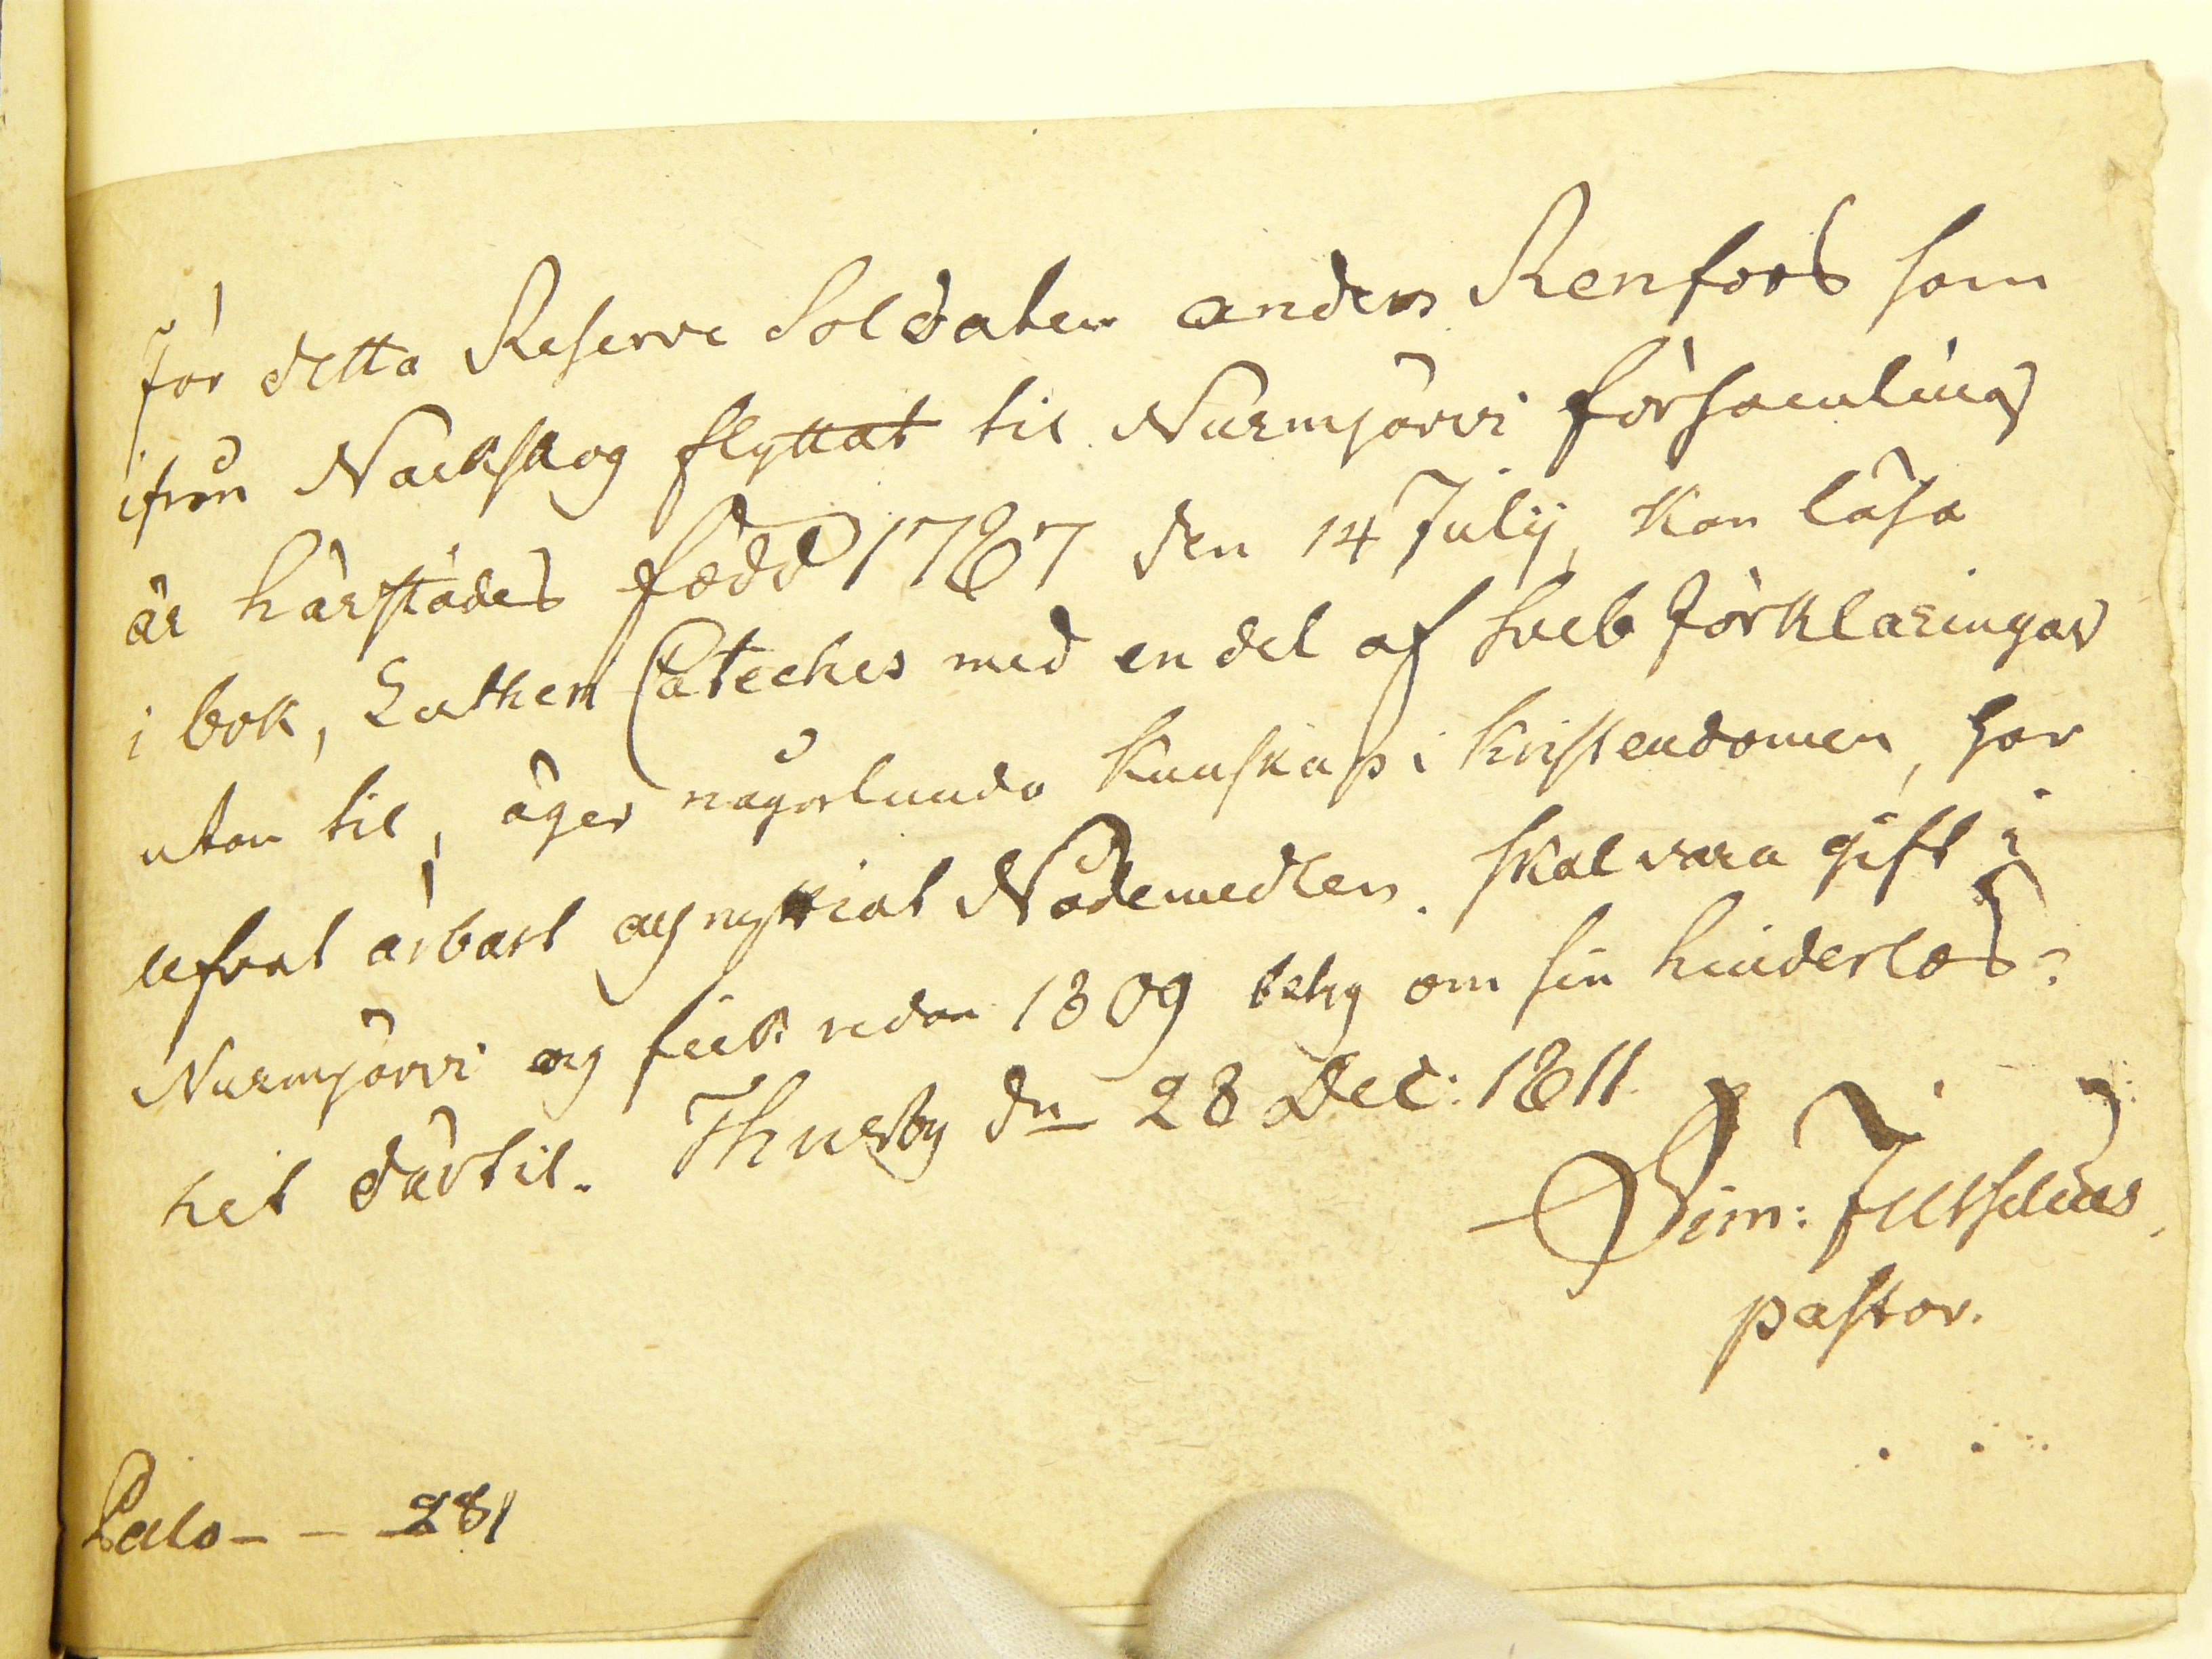 för detta Reserve Soldaten anders Renfors som
ifrån Nackskog flyttat til Nurmjärvi församling
är härstädes född 1787 den 14 Julij, kan läsa
i bok, Lutheri Cateches med en del af Sveb förklaringar
utan til, äger någorlunda kunskap i kristendomen, har
lefvat ärbart og nyttiat Nådemedlen. skal vara gift i
Nurmjärvi og fick redan 1809 betyg om sin hinderlös-
het därtil. Thusby dn 28 Dec: 1811.
Sim:
pastor.
Palo - - 281